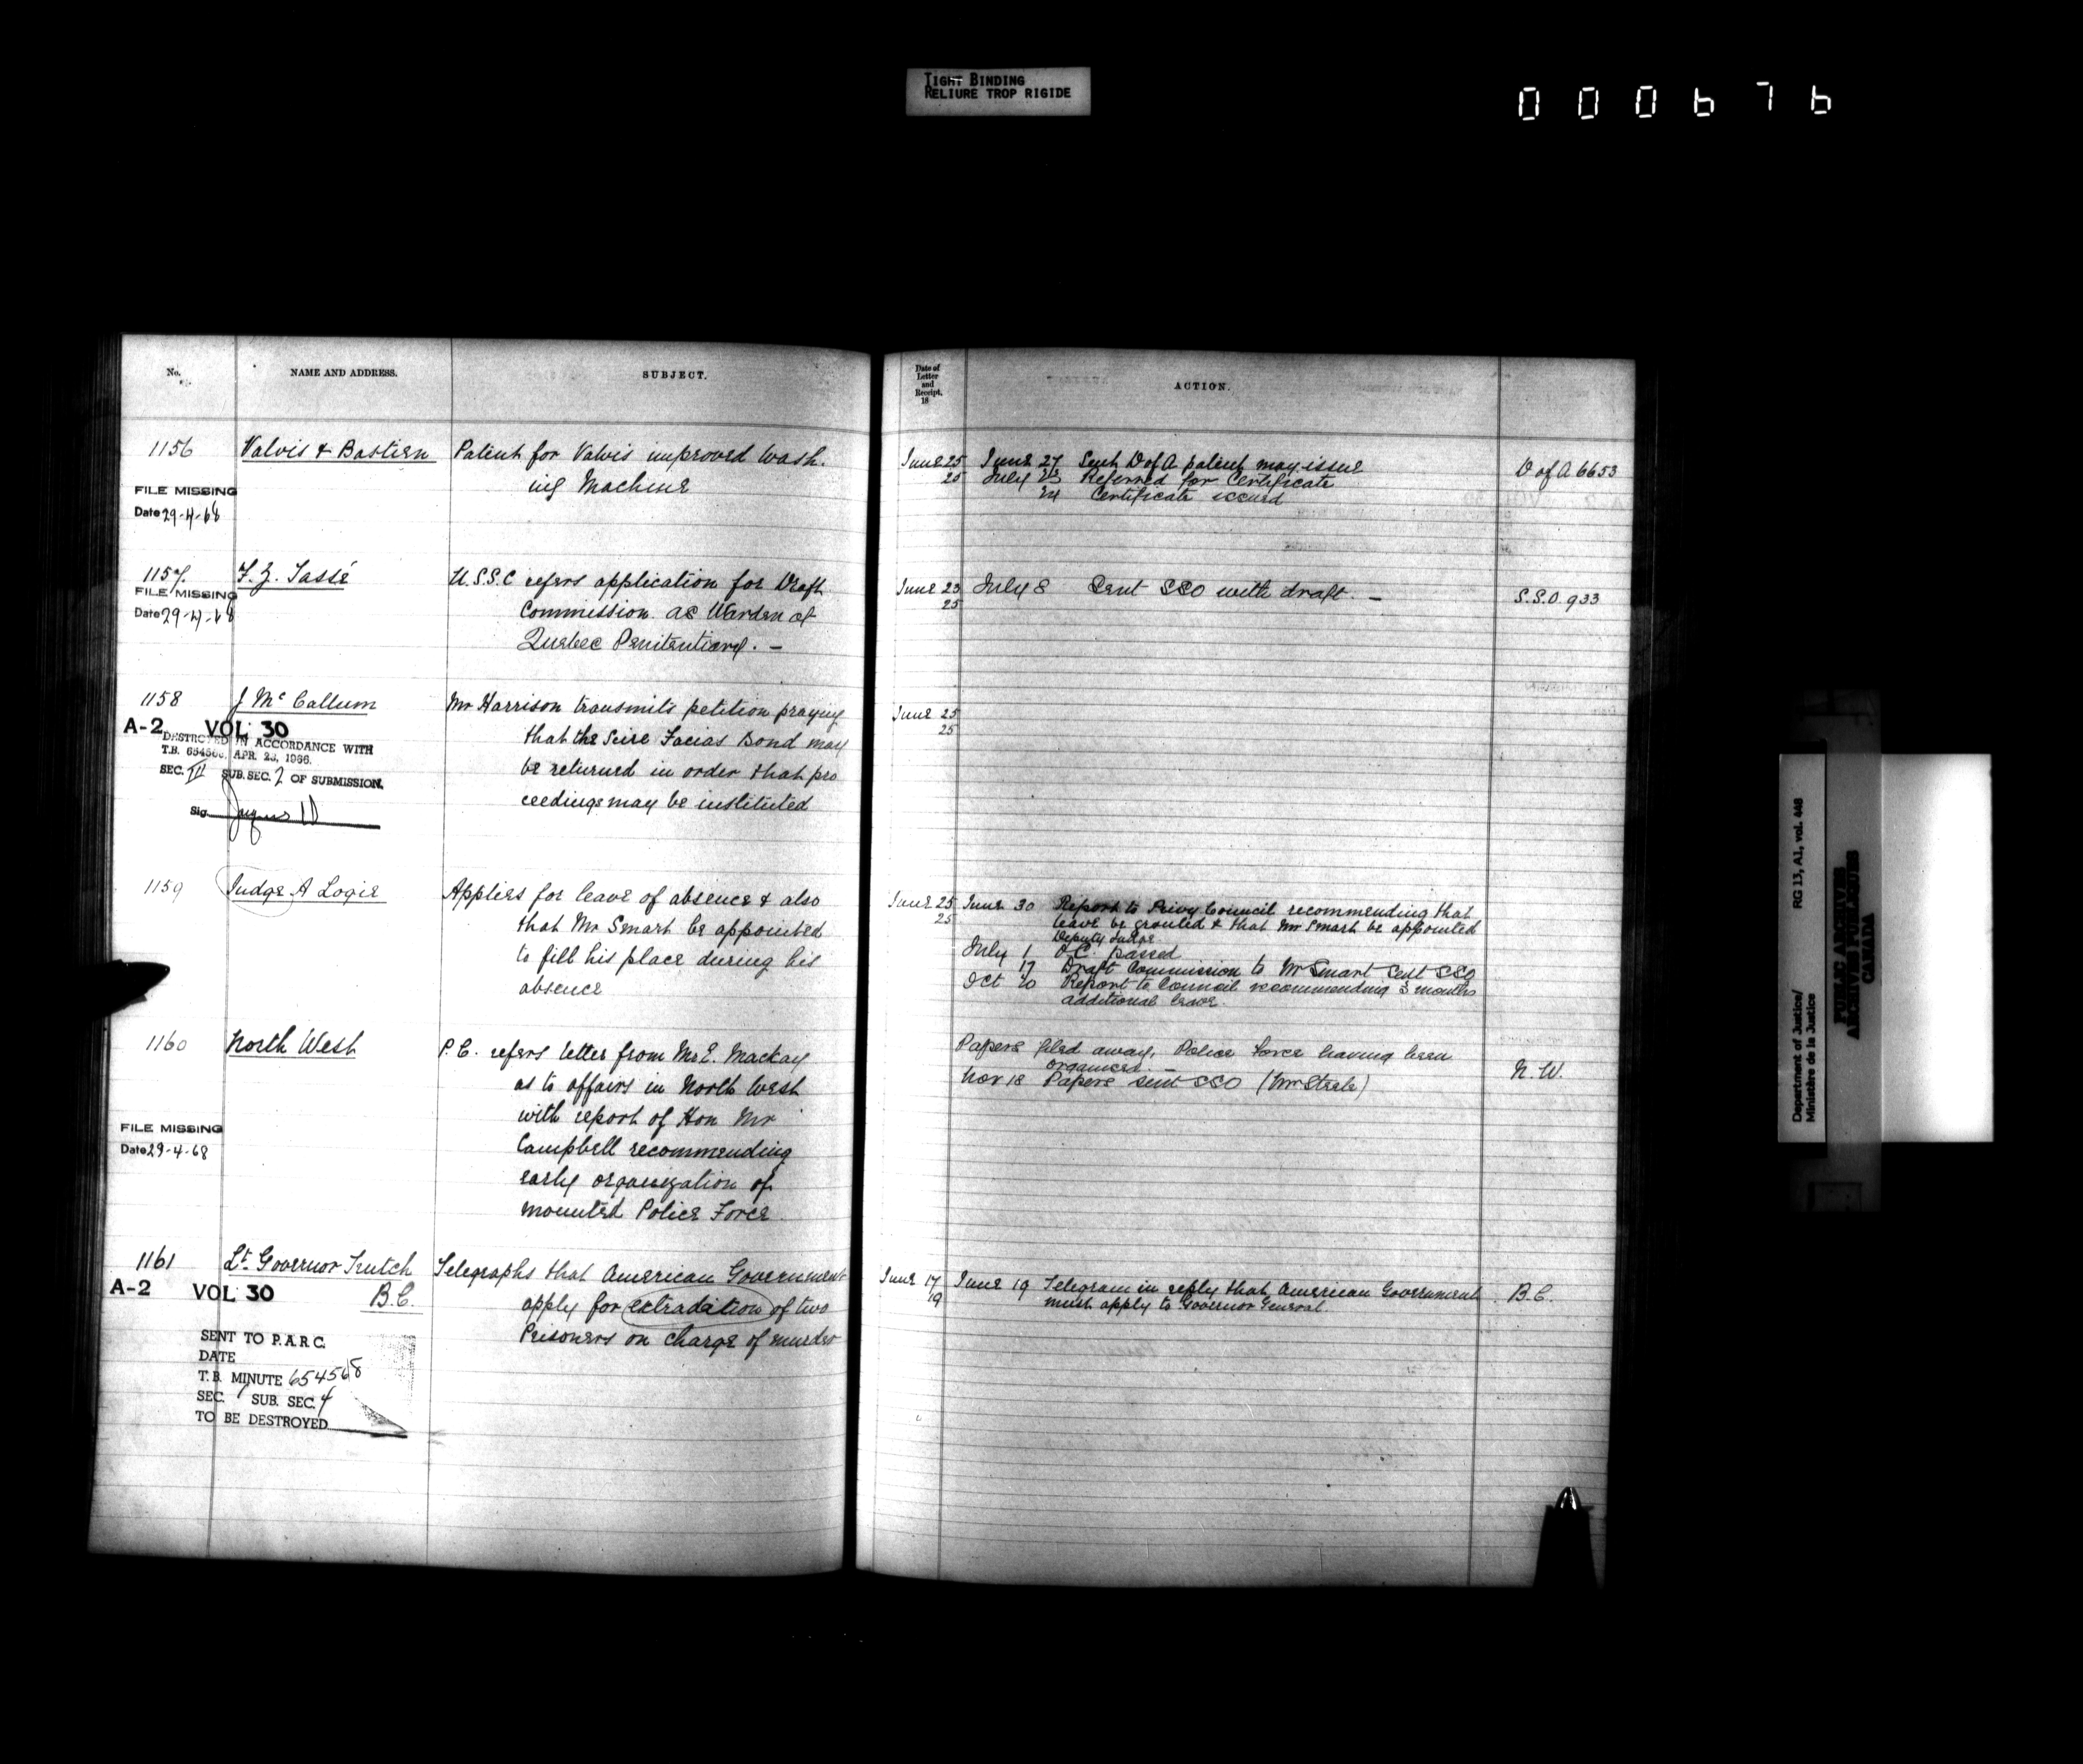 TIGHT BINDING
RELIURE TROP RIGIDE
000676
No.
NAME AND ADDRESS.
SUBJECT.
Date of
Letter
and
Receipt.
18
ACTION.
1156
Valois & Bastien
Patent for Valois improved Wash.
ing Machine
FILE MISSING
Date 29-4-68
June 25
25
June 27 Sent D of A patent may issue
July 23 Referred for Certificate
24 Certificate issued
D of A 6653
1157.
F. Z. Tassé
FILE MISSING
Date 29-4-68
U.S.S.C refers application for Draft
Commission as Warden of
Quebec Penitentiary. —
June 23
25
July 8 Sent SSO with draft. —
S.S.O. 933
1158
J McCallum
A-2 VOL 30
DESTROYED IN ACCORDANCE WITH
T.B. 654568, APR. 23, 1966.
SEC. III SUB. SEC. 2 OF SUBMISSION.
Sig.
Mr Harrison transmits petition praying
that the Scire Facias Bond may
be returned in order that pro
ceedings may be instituted
June 25
25
1159
Judge A Logie
Applies for leave of absence & also
that Mr Smart be appointed
to fill his place during his
absence
June 25
25
June 30 Report to Privy Council recommending that
leave be granted & that Mr Smart be appointed
Deputy Judge
July 1 O.C. passed
17 Draft Commission to Mr Smart sent SSO
Oct 20 Report to Council recommending 3 months
additional leave.
1160
North West
FILE MISSING
Date 29-4-68
P.C. refers letter from Mr E. Mackay
as to affairs in North West
with report of Hon Mr
Campbell recommending
early organization of
mounted Police Force
Papers filed away, Police Force having been
organized. —
Nov 18 Papers sent SSO (Mr Steele)
N. W.
1161
Lt. Governor Trutch
B.C.
A-2 VOL 30
SENT TO P.A.R.C.
DATE
T.B. MINUTE 654568
SEC. 1 SUB. SEC. 4
TO BE DESTROYED
Telegraphs that American Government
apply for extradition of two
Prisoners on charge of murder
June 17
19
June 19 Telegram in reply that American Government
must apply to Governor General
B.C.
Department of Justice/
Ministère de la Justice
RG 13, A1, vol. 448
PUBLIC ARCHIVES
ARCHIVES PUBLIQUES
CANADA